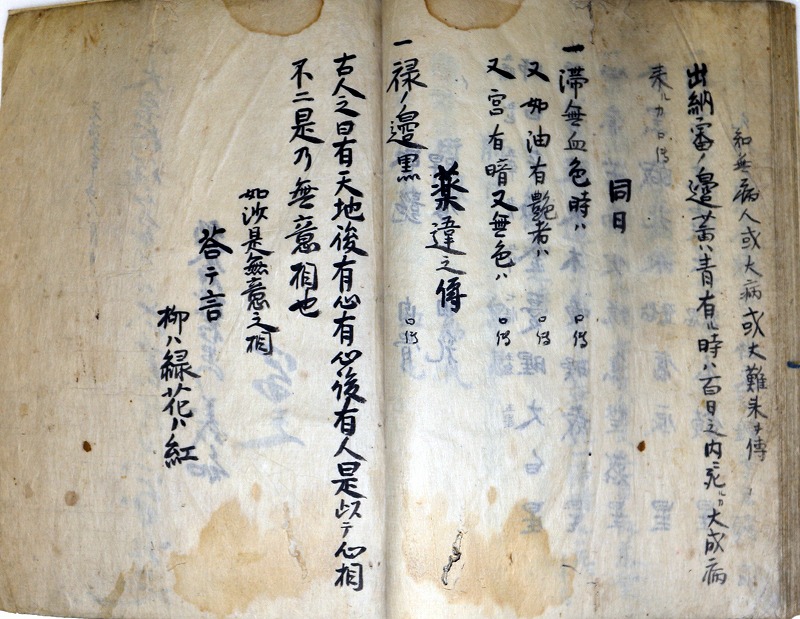 知無病人或大病或大難未タ傳
出納審ノ邉黄ハ青有ル時ハ百日之内ニ死ルカ大成病
来ルカ口傳
同日
一滞無血色時ハ 口傳
又如油有艶者ハ 口傳
又宮有暗又無色ハ 口傳
薬違之傳
一禄ノ邉黒 口傳
古人之曰有天地後有心有心後有人是以テ心相
不二是乃無意相也
如沙是無意之相
荅テ言
柳ハ緑花ハ紅